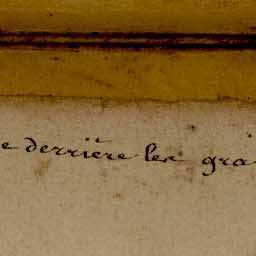 e derrière les gra